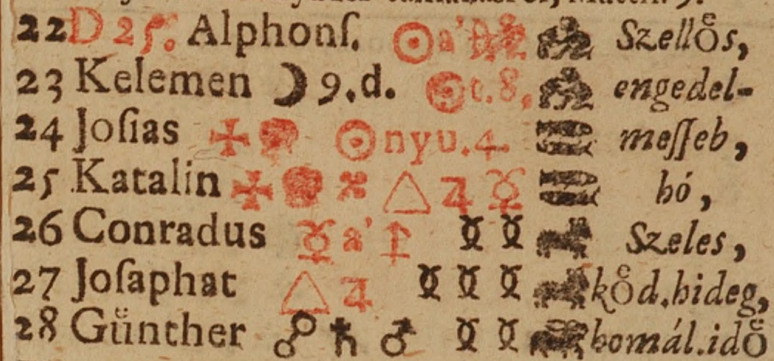 22 D 25. Alphonſ. ☉ a' Szello̊s,
23 Kelemen ☽ 9.d. ☉ t.8. engedel-
24 Joſias ☉ nyu.4. meſſeb,
25 Katalin △ ♃ ☿ hó,
26 Conradus ☿ a' ☿ ☿ Szeles,
27 Joſaphat △ ♃ ☿ ☿ ☿ ko̊d.hideg,
28 Günther ☍ ♄ ♂ ☿ ☿ homál.ido̊